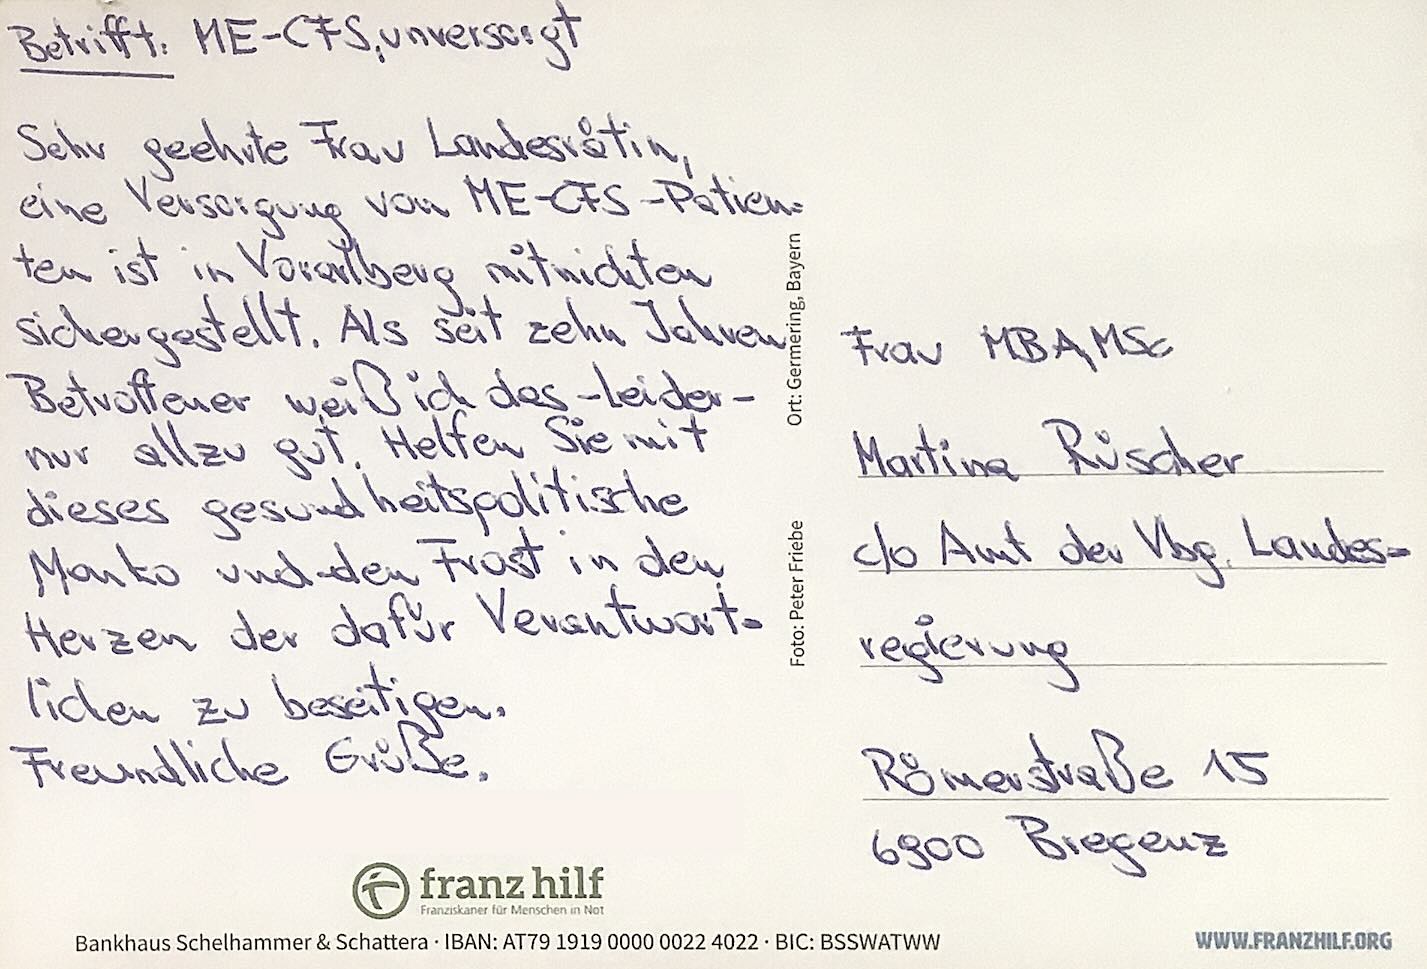 Betrifft: ME-CFS, unversorgt
Sehr geehrte Frau Landesrätin,
eine Versorgung von ME-CFS-Patien-
ten ist in Vorarlberg mitnichten
sichergestellt. Als seit zehn Jahren
Betroffener weiß ich das -leider-
nur allzu gut. Helfen Sie mit
dieses gesundheitspolitische
Manko und den Frost in den
Herzen der dafür Verantwort-
lichen zu beseitigen.
Freundliche Grüße.
Ort: Germering, Bayern
Foto: Peter Friebe
Frau MBA, MSc
Martina Rüscher
c/o Amt der Vbg. Landes-
regierung
Römerstraße 15
6900 Bregenz
franz hilf
Franziskaner für Menschen in Not
Bankhaus Schelhammer & Schattera · IBAN: AT79 1919 0000 0022 4022 · BIC: BSSWATWW
WWW.FRANZHILF.ORG